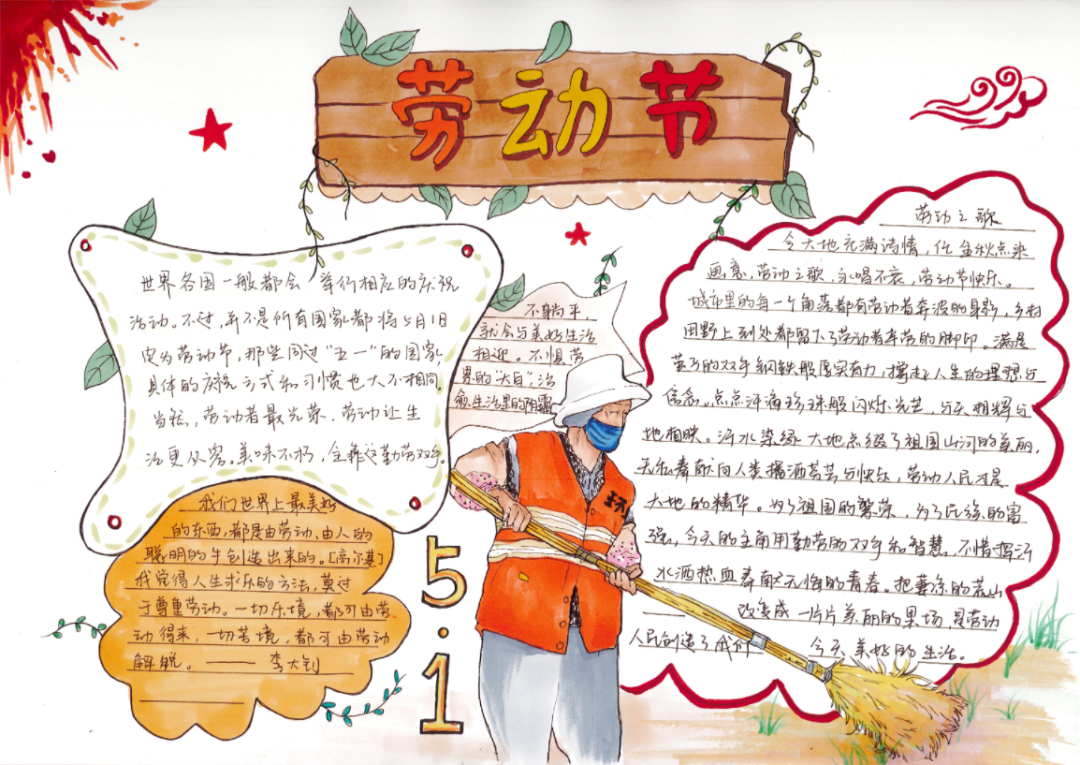 劳动节
世界各国一般都会举行相应的庆祝
活动。不过,并不是所有国家都将5月1日
定为劳动节,那些同过“五一”的国家
具体的庆祝方式和习惯也大不相同。
当然,劳动者最光荣,劳动让生
活更从容。美味不朽,全靠这勤劳双手。
我们世界上最美好
的东西,都是由劳动、由人的
聪明的手创造出来的。[高尔基]
我觉得人生求乐的方法,莫过
于尊重劳动。一切乐境,都可由劳
动得来,一切苦境,都可由劳动
解脱。—— 李大钊
不躺平,
就会与美好生活
相迎。不惧劳
累的“大日”,治
愈生活里的阴霾
5·1
环
劳动之歌
令大地充满诗情,任金秋点染
画意,劳动之歌,永唱不衰,劳动节快乐。
城市里的每一个角落都有劳动者奔波的身影,乡村
田野上到处都留下了劳动者辛劳的脚印。满是
茧子的双手钢铁般厚实有力,撑起人生的理想与
信念。点点汗滴珍珠般闪烁光芒,与天相辉与
地相映。汗水染绿大地点缀了祖国山河的美丽,
无私奉献向人类播洒芬芳与快乐,劳动人民才是
大地的精华。为了祖国的繁荣,为了民族的富
强,今天的主角用勤劳的双手和智慧,不惜挥汗
水洒热血奉献无悔的青春。把荒凉的荒山
改变成一片片美丽的果场,是劳动
人民创造了我们 今天美好的生活。